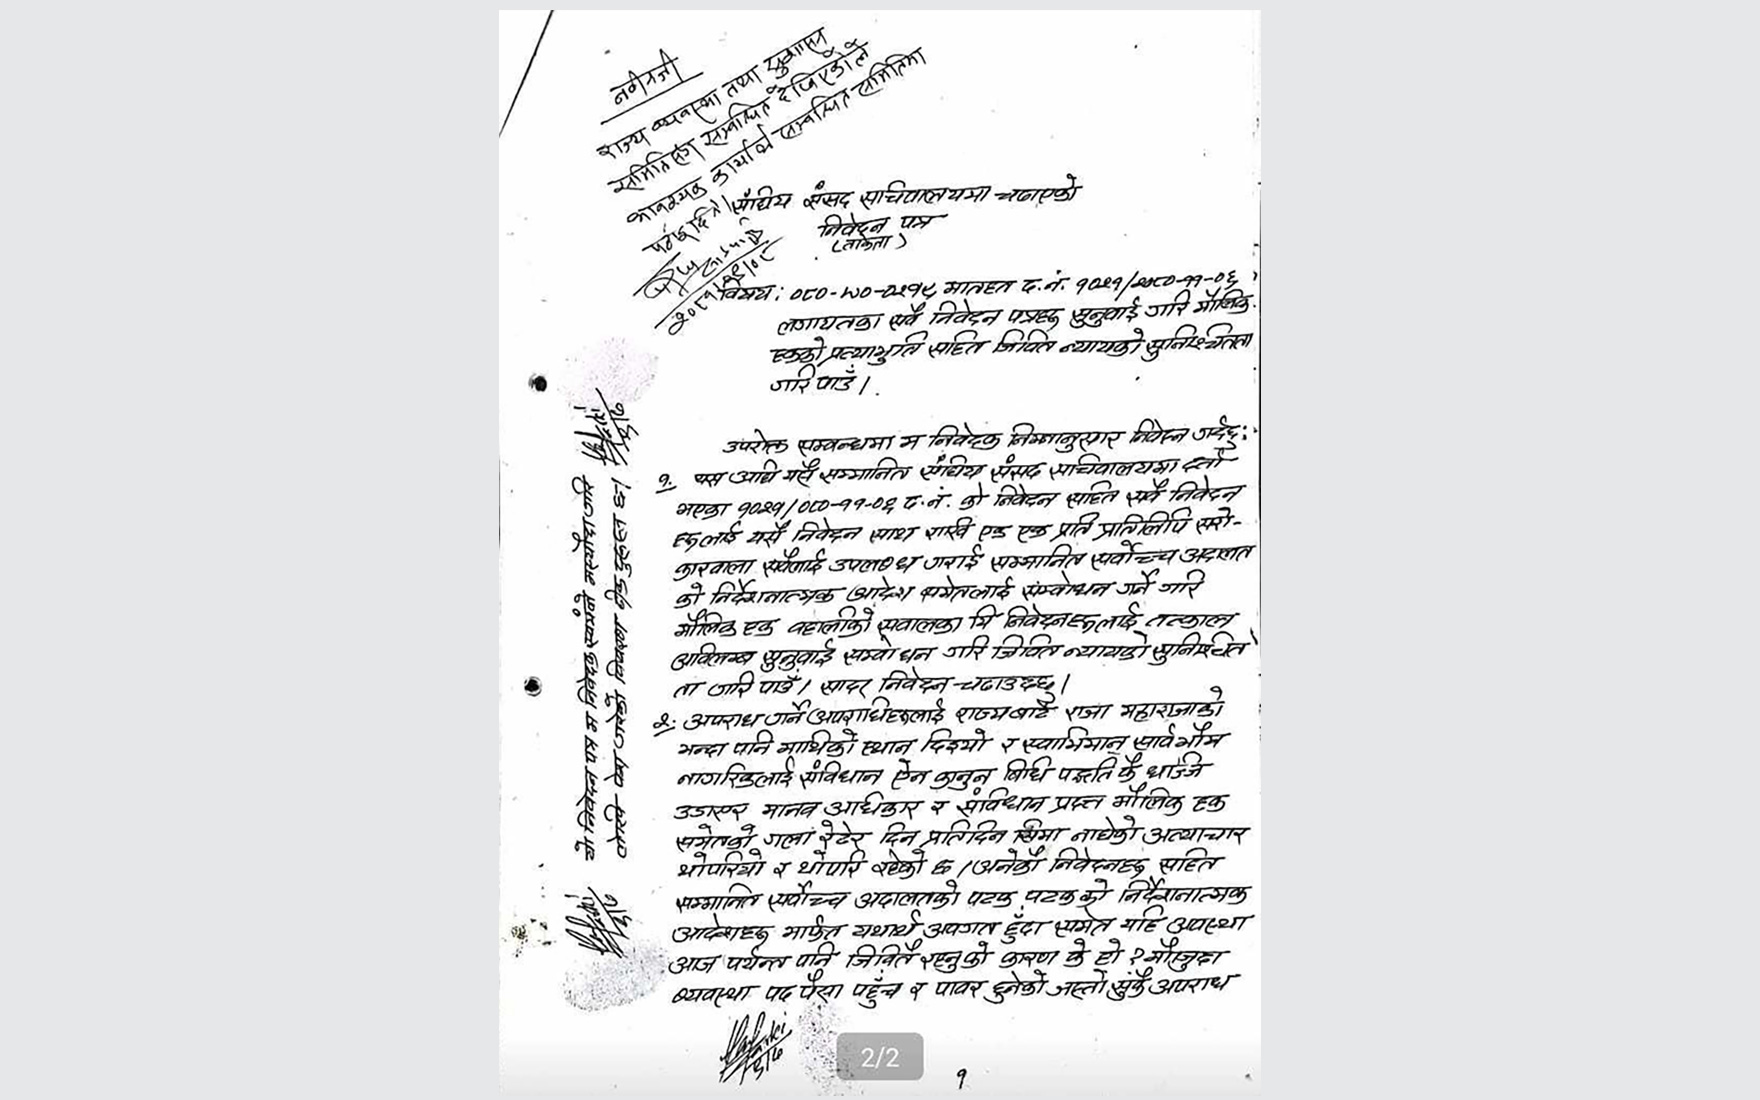 नवीनजी
राज्य व्यवस्था तथा सुशासन
समितिसंग सम्बन्धित देखिएकोले
आवश्यक कार्यार्थ सम्बन्धित समितिमा
पठाइदिने।
संघिय संसद सचिवालयमा चढाएको
निवेदन पत्र
(ताकेता)
विषय: ०८०-WO-०२१९ मातहत द.नं. १०२१/२०८०-११-०६
लगायतका सबै निवेदन पत्रहरु सुनुवाई गरि मौलिक
हकको प्रत्याभुति सहित जिवित न्यायको सुनिश्चितता
गरि पाउँ।
उपरोक्त सम्बन्धमा म निवेदक निम्नानुसार निवेदन गर्दछु:
१. यस अघि यसै सम्मानित संघिय संसद सचिवालयमा दर्ता
भएका १०२१/०८०-११-०६ द.नं. को निवेदन सहित सबै निवेदन
हरुलाई यसै निवेदन साथ राखि एक एक प्रति प्रतिलिपि सरो-
कारवाला सबैलाई उपलब्ध गराई सम्मानित सर्वोच्च अदालत
को निर्देशनात्मक आदेश समेतलाई सम्बोधन गर्ने गरि
मौलिक हक बहालीको सवालका यि निवेदनहरुलाई तत्काल
अविलम्ब सुनुवाई सम्बोधन गरि जिवित न्यायको सुनिश्चित
ता गरि पाउँ। सादर निवेदन चढाउदछु।
२. अपराध गर्ने अपराधिहरुलाई राज्यबाटै राजा महाराजाको
भन्दा पनि माथिको स्थान दिइयो र स्वाभिमान् सार्वभौम
नागरिकलाई संविधान ऐन कानुन विधि पद्धति कै धज्जि
उडाएर मानव अधिकार र संविधान प्रदत्त मौलिक हक
समेतको गला रेटेर दिन प्रतिदिन सिमा नाघेको अत्याचार
थोपरियो र थोपरि रहेको छ। अनेकौं निवेदनहरु सहित
सम्मानित सर्वोच्च अदालतको पटक पटकको निर्देशनात्मक
आदेशहरु मार्फत यथार्थ अवगत हुँदा समेत यहि अवस्था
आज पर्यन्त पनि जिवितै रहनुको कारण के हो? मौजुदा
व्यवस्था पद पैसा पहुँच र पावर हुनेको जस्तो सुकै अपराध
2/2
१